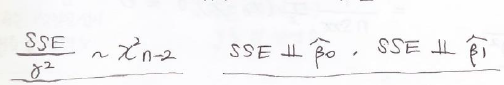 SSE/γ² ~ χ²n-2    SSE ⫫ β̂0 . SSE ⫫ β̂1